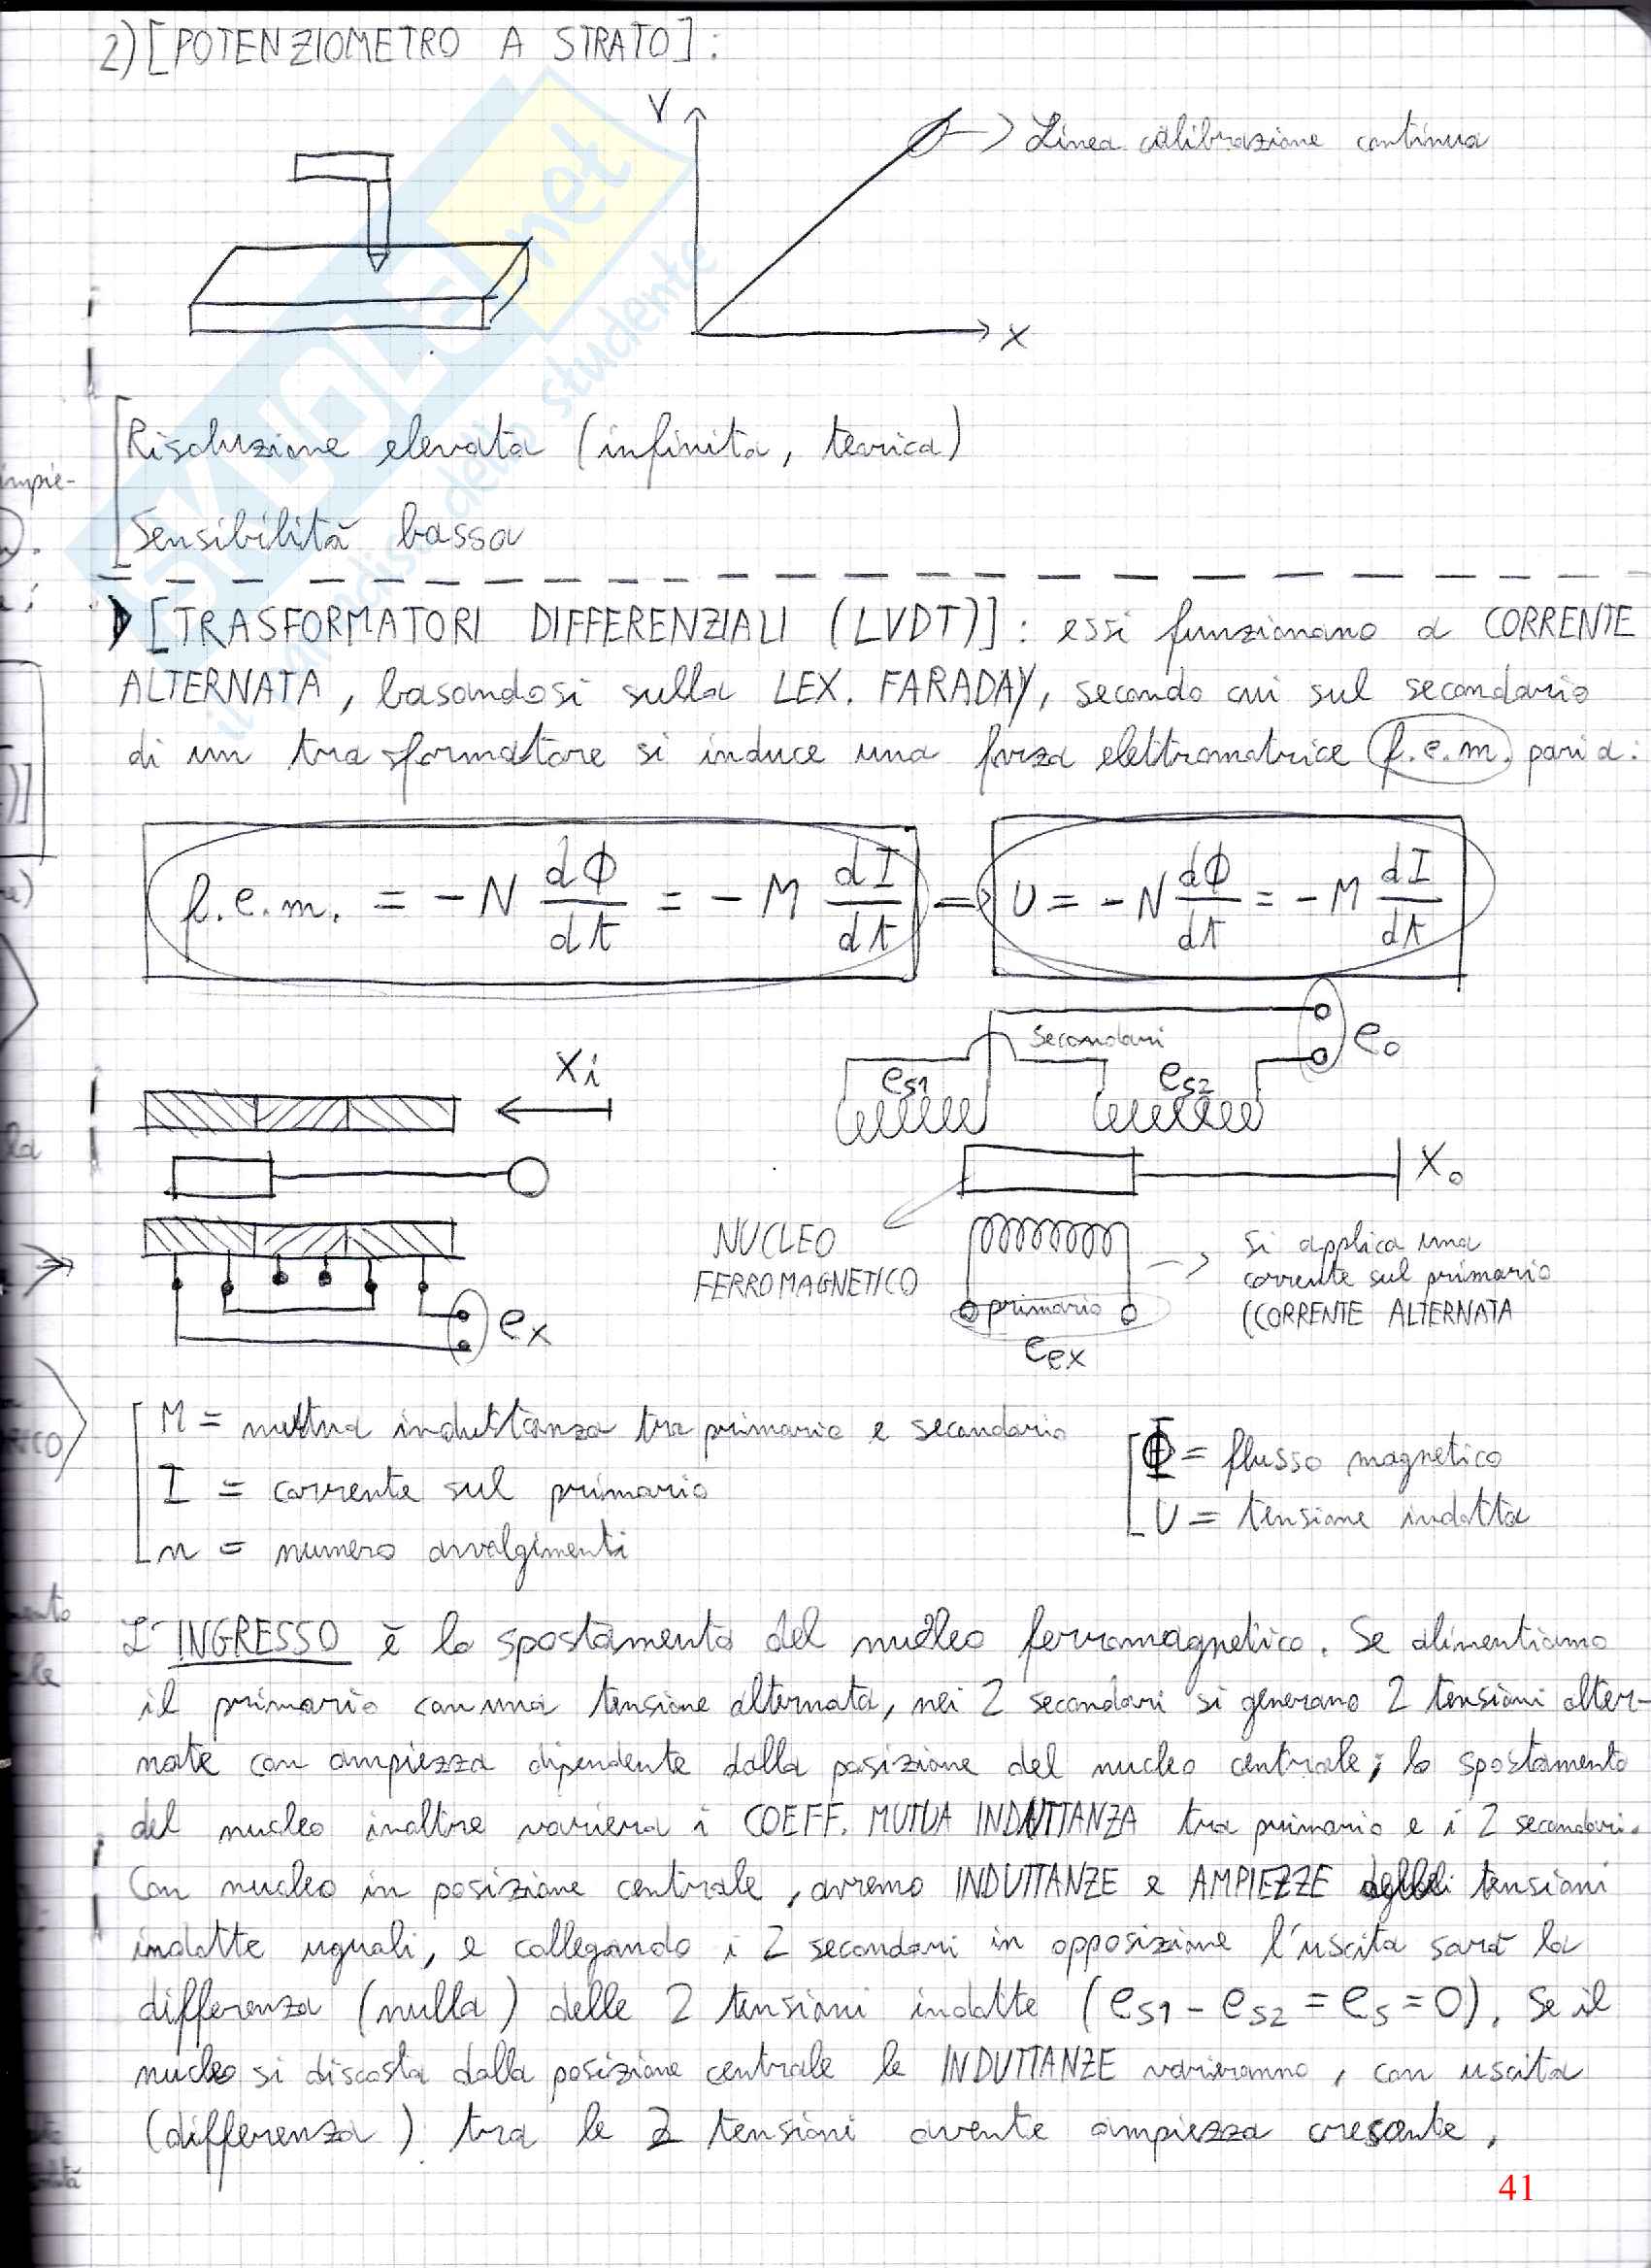 2) [POTENZIOMETRO A STRATO]:
V
Linea calibrazione continua
X
Risoluzione elevata (infinita, teorica)
Sensibilità bassa
[TRASFORMATORI DIFFERENZIALI (LVDT)]: essi funzionano a CORRENTE
ALTERNATA, basandosi sulla LEX. FARADAY, secondo cui sul secondario
di un trasformatore si induce una forza elettromotrice f.e.m. pari a:
f.e.m. = -N dΦ/dt = -M dI/dt → U = -N dΦ/dt = -M dI/dt
Secondari
e₀
xi
es1
es2
X₀
NUCLEO
FERROMAGNETICO
si applica una
corrente sul primario
(CORRENTE ALTERNATA
primario
ex
eex
M = mutua induttanza tra primario e secondario
I = corrente sul primario
n = numero avvolgimenti
Φ = flusso magnetico
U = tensione indotta
L'INGRESSO è lo spostamento del nucleo ferromagnetico. Se alimentiamo
il primario con una tensione alternata, nei 2 secondari si generano 2 tensioni alter-
nate con ampiezza dipendente dalla posizione del nucleo centrale; lo spostamento
del nucleo inoltre varierà i COEFF. MUTUA INDUTTANZA tra primario e i 2 secondari.
Con nucleo in posizione centrale, avremo INDUTTANZE e AMPIEZZE tensioni
indotte uguali, e collegando i 2 secondari in opposizione l'uscita sarà la
differenza (nulla) delle 2 tensioni indotte (es1 - es2 = es = 0). Se il
nucleo si discosta dalla posizione centrale le INDUTTANZE varieranno, con uscita
(differenza) tra le 2 tensioni avente ampiezza crescente,
41
skuola.net
il paradiso dello studente